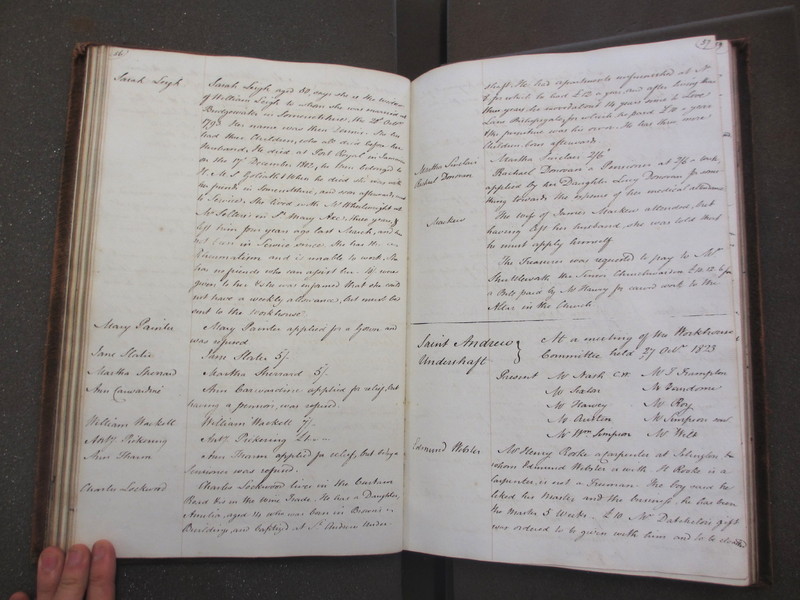 56
Sarah Leigh
Sarah Leigh aged 58, says she is the widow
of William Leigh to whom she was married at
Bridgewater in Somersetshire, the 21st Octr
1793. Her name was then Dennis. She has
had three Children, who all died before her
Husband. He died at Port Royal in Jamaica
on the 17 December 1802, he then belonged to
H. M. S. Goliath. When he died she was with
her friends in Somersetshire, and soon afterwards went
to Service. She lived with Mr Wheelwright at
in St Mary Axe three years, &
left him four years ago last March, and has
not been in Service since. She has the
Rheumatism and is unable to work. She
has no friends who can assist her. 4/ was
given to her & she was informed that she could
not have a weekly allowance, but must come
out to the Workhouse
Mary Painter
Mary Painter applied for a Gown and
was refused
Jane Slater
Jane Slater 5/.
Martha Sherrard
Martha Sherrard 5/.
Ann Carwardine
Ann Carwardine applied for relief, but
having a pension, was refused.
William Hackell
William Hackell 7/.
Anty. Pickering
Anty. Pickering
Ann Thorn
Ann Thorn applied for relief, but being a
was refused.
Charles Lockwood
Charles Lockwood lives in the
Road & is in the Wine Trade. He has a Daughter,
Amelia, aged 14 who was born in Browns
Buildings, and baptized at St Andrew Under
57
shaft. He had apartments unfurnished at No
for which he paid £22 a year, and after living there
three years, he lived about 14 years was in Love
Lane Bishopsgate for which he paid £10 a year
& the furniture was his own. He has three more
Children born afterwards.
Martha Sinclair
Martha Sinclair 2/6
Rachael Donovan
Rachael Donovan a Pensioner at 2/6 a week,
applied by her Daughter Lucy Donovan for some
thing towards the expense of her medical attendance
Markew
The wife of James Markew attended, but
having left her husband, she was told that
he must apply himself.
The Treasurer was requested to pay to Mr
Shuttleworth the Senior Churchwarden £12.12.6 for
a Bill paid by Mr Henry for carved work to the
Altar in the Church
Saint Andrew
Undershaft
At a meeting of the Workhouse
Committee held 27 Octr. 1823
Present Mr Nash CW Mr T Frampton
Mr Sexton Mr Vandome
Mr Harvey Mr Roy
Mr Austin Mr Simpson
Mr Wm Simpson Mr Wilt
Edmund Webster
Mr Henry Rooke a Carpenter at Islington to
whom Edmund Webster is with Mr Rooke is a
Carpenter, is not a Freeman. The boy said he
liked his Master and the business, he has been
the Master 5 Weeks. £10. Mr Datchelor's gift
was ordered to be given with him and to be